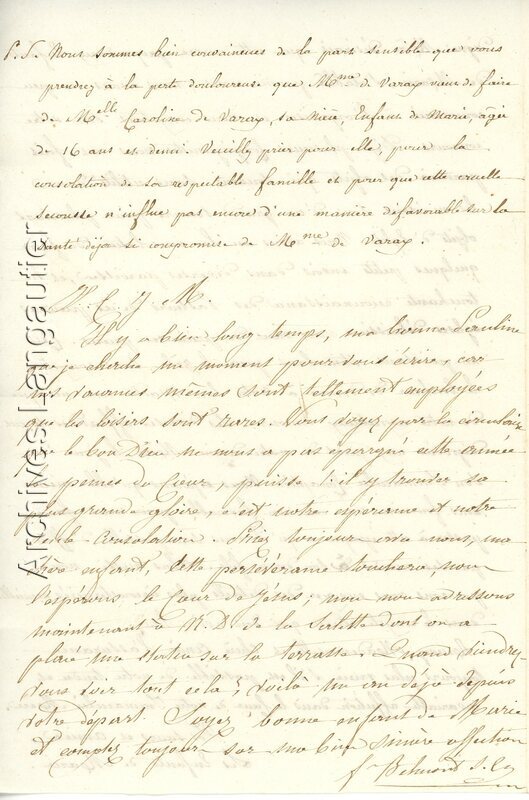 P.S. Nous sommes bien convaincues de la part sensible que vous
prendrez à la perte douloureuse que Mme de Varax vient de faire
de Melle Caroline de Varax, sa nièce, Enfant de Marie, âgée
de 16 ans et demi. Veuillez prier pour elle, pour la
consolation de sa respectable famille et pour que cette cruelle
secousse n'influe pas encore d'une manière défavorable sur la
santé déjà si compromise de Mme de Varax.
V. C. J. M.
Il y a bien long temps, ma bonne Pauline
que je cherche un moment pour vous écrire, car
les journées mêmes sont tellement employées
que les loisirs sont rares. Vous voyez par la circulaire
que le bon Dieu ne nous a pas épargné cette année
peines de Cœur, puisse-t-il y trouver sa
plus grande gloire, c'est notre espérance et notre
seule consolation. Priez toujours avec nous, ma
chère enfant, cette persévérance touchera, nous
l'espérons le Cœur de Jésus; nous nous adressons
maintenant à N.D. de la Salette dont on a
placé une statue sur la terrasse. Quand viendrez
vous voir tout cela; voilà un an déjà depuis
votre départ. Soyez bonne enfant de Marie
et comptez toujours sur ma bien sincère affection
Archives Langautier